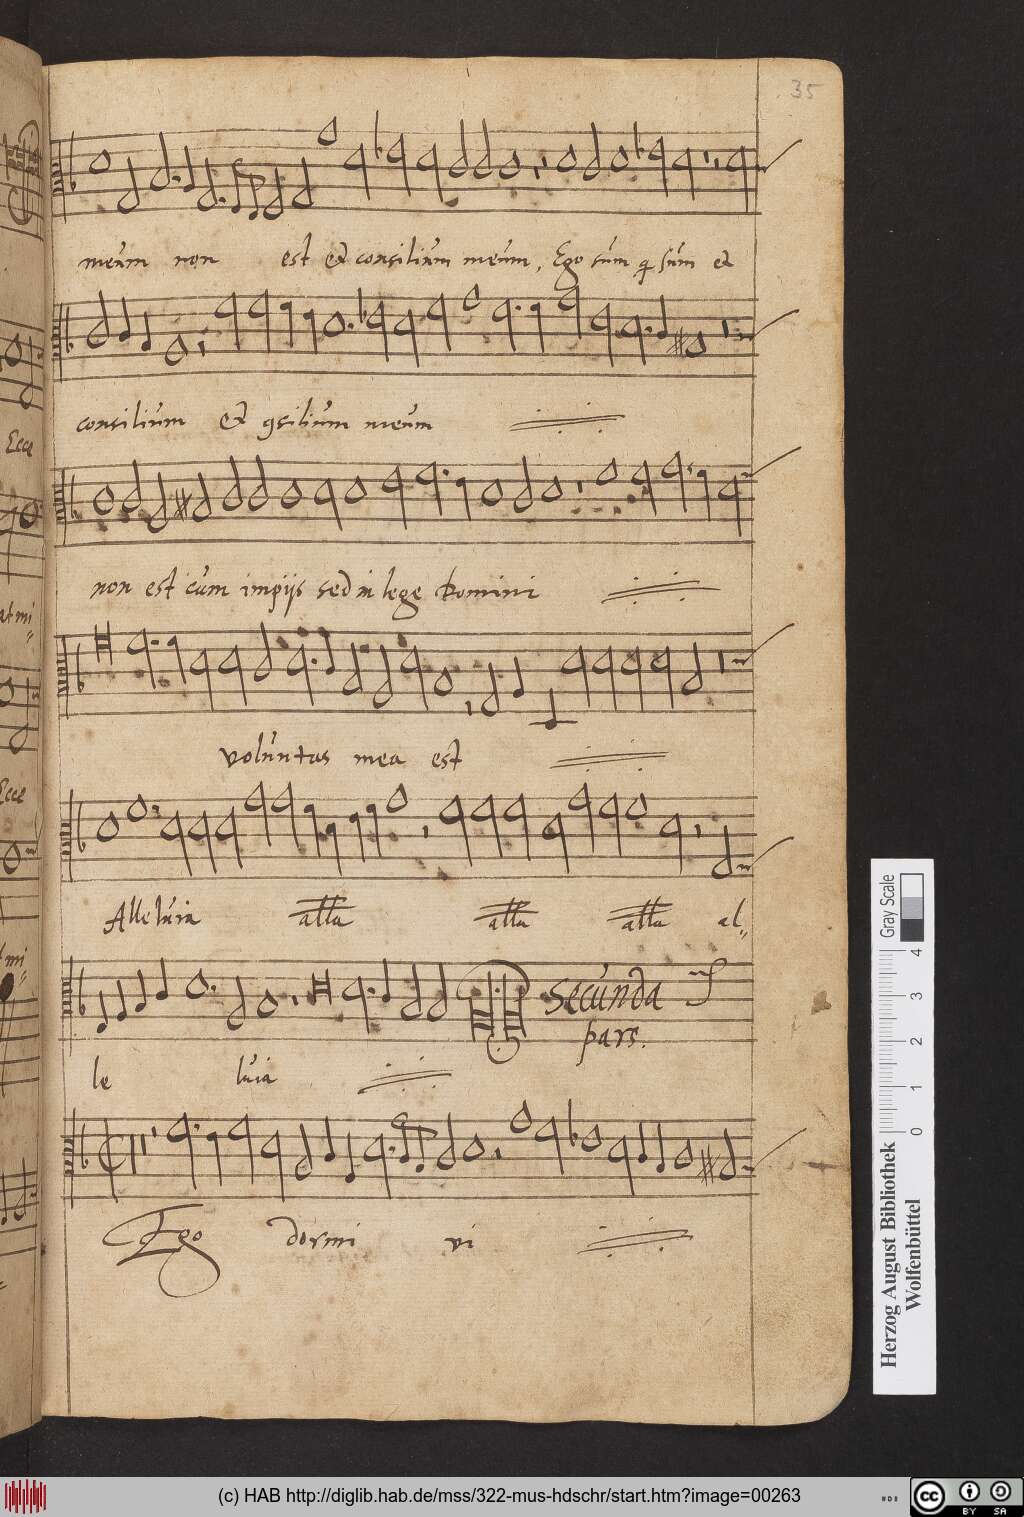 35
meum non est et consilium meum, Ego sum qi sum et
consilium et 9silium meum
non est cum impijs sed in lege Domini
voluntas mea est
Alleluia alla alla alla al„
Secunda
pars.
le luia
Ego dormi vi
Ecce
at mi„
Ecce
mi„
Gray Scale
0 1 2 3 4
Herzog August Bibliothek
Wolfenbüttel
(c) HAB http://diglib.hab.de/mss/322-mus-hdschr/start.htm?image=00263
cc BY SA